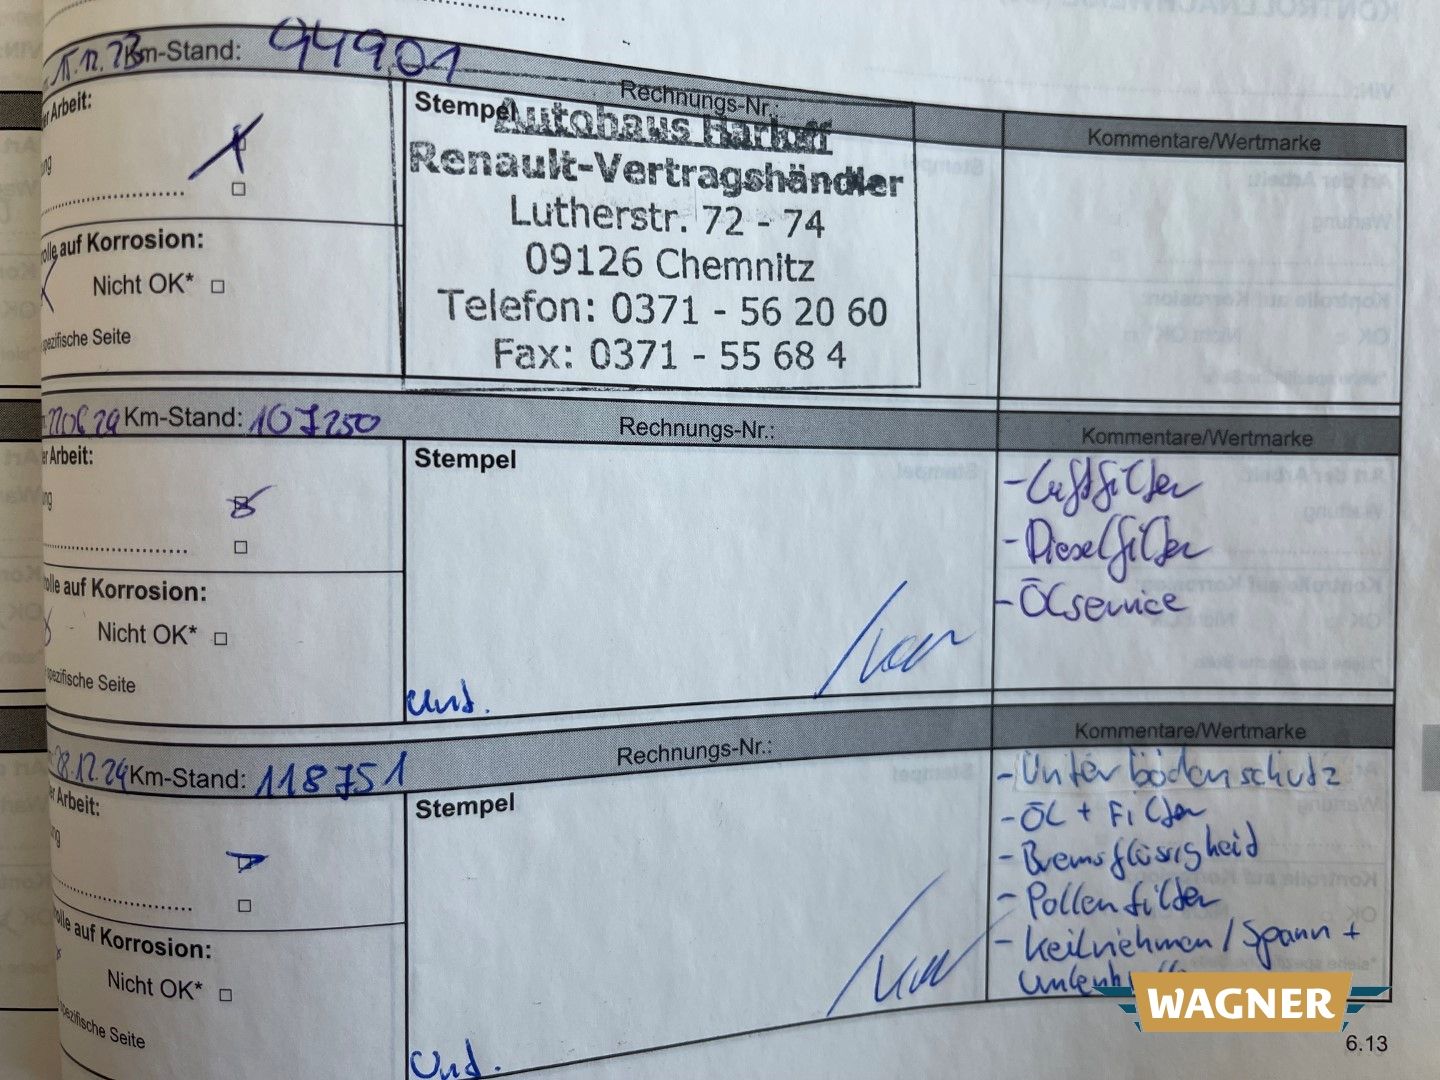 15.12.23 Km-Stand: 94901
Rechnungs-Nr.:
er Arbeit:
Stempel
Autohaus Harloff
Renault-Vertragshändler
Lutherstr. 72 - 74
09126 Chemnitz
Telefon: 0371 - 56 20 60
Fax: 0371 - 55 68 4
Kommentare/Wertmarke
ng
olle auf Korrosion:
Nicht OK*
spezifische Seite
Km-Stand: 107250
Rechnungs-Nr.:
Kommentare/Wertmarke
er Arbeit:
Stempel
ng
- Luftfilter
- Dieselfilter
- Ölservice
olle auf Korrosion:
Nicht OK*
spezifische Seite
und.
28.12.24 Km-Stand: 118751
Rechnungs-Nr.:
Kommentare/Wertmarke
er Arbeit:
Stempel
ng
- Unterbodenschutz
- Öl + Filter
- Bremsflüssigheid
- Pollenfilter
- Keilriehmen / Spann +
olle auf Korrosion:
Nicht OK*
spezifische Seite
und.
WAGNER
6.13